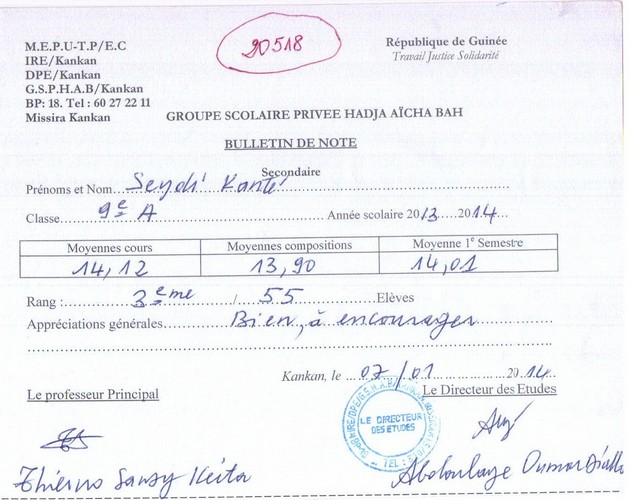 M.E.P.U-T.P/E.C
IRE/Kankan
DPE/Kankan
G.S.P.H.A.B/Kankan
BP: 18. Tel : 60 27 22 11
Missira Kankan
20518
République de Guinée
Travail Justice Solidarité
GROUPE SCOLAIRE PRIVEE HADJA AÏCHA BAH
BULLETIN DE NOTE
Secondaire
Prénoms et Nom Seydi Kanté
Classe 9e A Année scolaire 2013 2014
Moyennes cours Moyennes compositions Moyenne 1e Semestre
14,12 13,90 14,01
Rang : 3eme / 55 Elèves
Appréciations générales Bien, à encourager
Kankan, le 07/01 2014
Le professeur Principal Le Directeur des Etudes
LE DIRECTEUR
DES ETUDES
Thierno Sansy Keita Abdoulaye Oumar Diallo